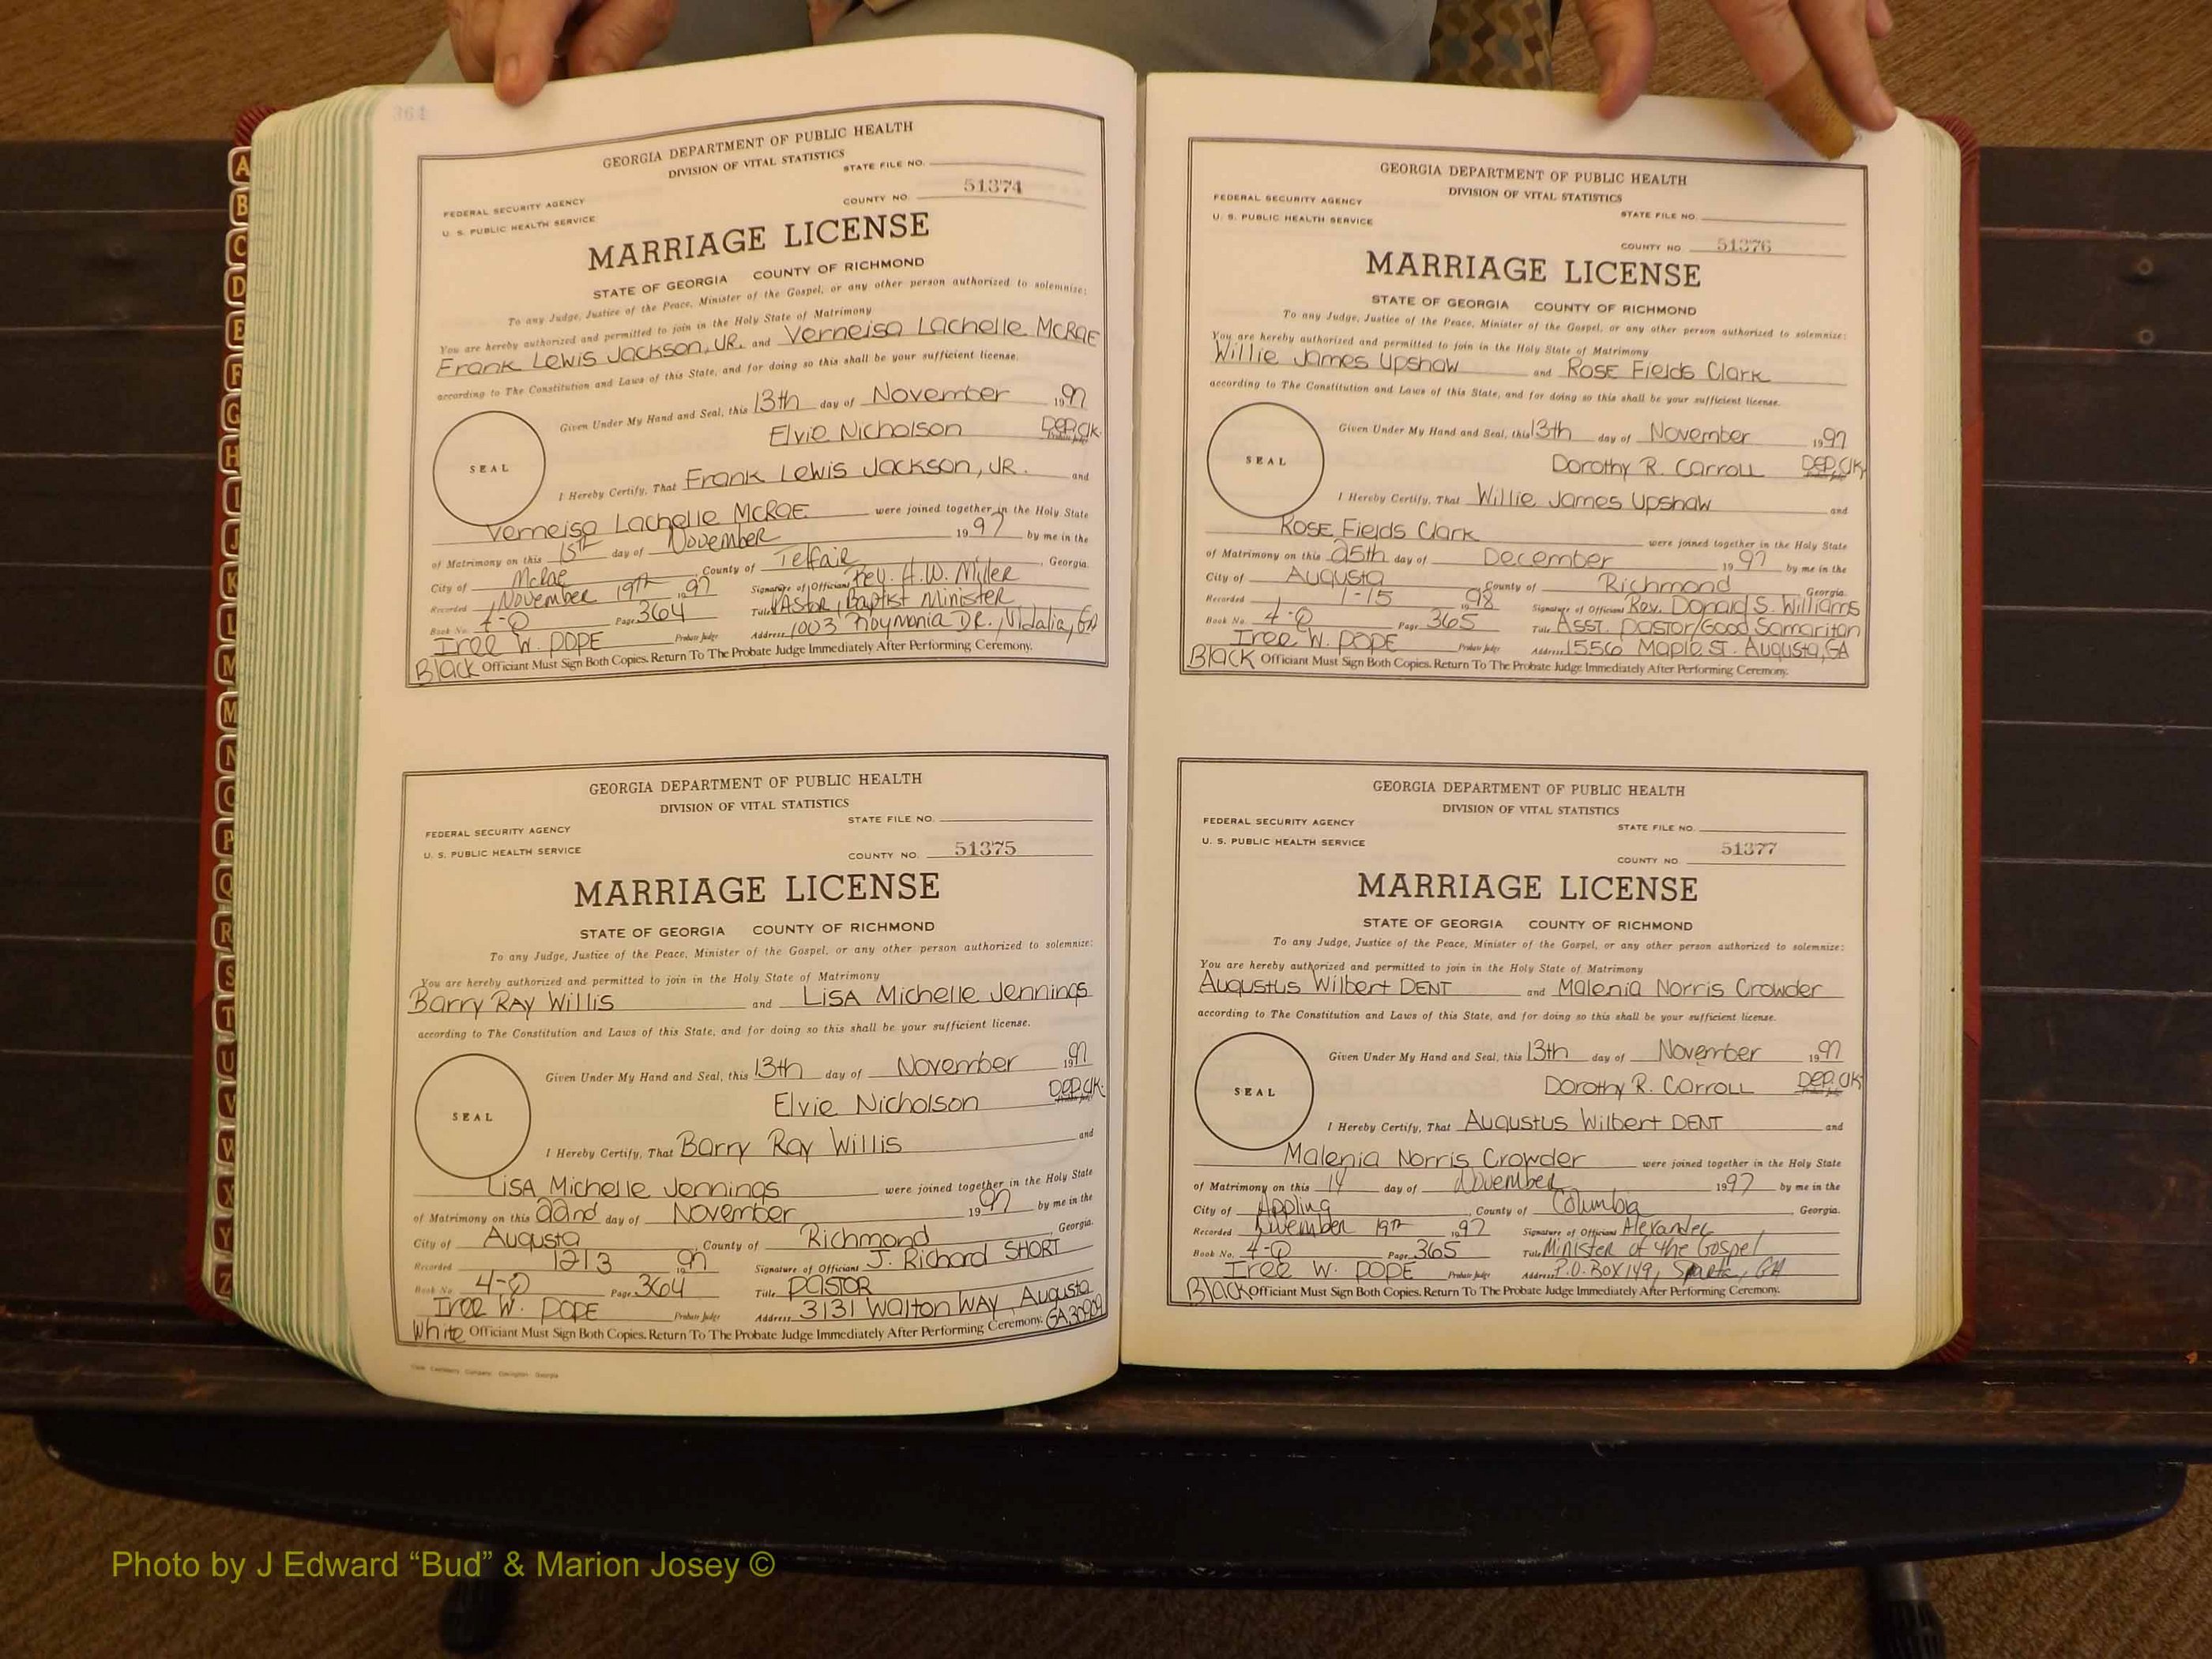 364
A
B
C
D
E
F
G
H
I
J
K
L
M
M
N
O
P
Q
R
S
T
U
V
W
X
Y
Z
GEORGIA DEPARTMENT OF PUBLIC HEALTH
DIVISION OF VITAL STATISTICS
STATE FILE NO.
FEDERAL SECURITY AGENCY
U. S. PUBLIC HEALTH SERVICE
COUNTY NO. 51374
MARRIAGE LICENSE
STATE OF GEORGIA COUNTY OF RICHMOND
To any Judge, Justice of the Peace, Minister of the Gospel, or any other person authorized to solemnize:
You are hereby authorized and permitted to join in the Holy State of Matrimony
Frank Lewis Jackson, JR. and Verneisa Lachelle McRae
according to The Constitution and Laws of this State, and for doing so this shall be your sufficient license.
Given Under My Hand and Seal, this 13th day of November 1997
Elvie Nicholson Dep. Clk.
SEAL
I Hereby Certify, That Frank Lewis Jackson, JR. and
Verneisa Lachelle McRae were joined together in the Holy State
of Matrimony on this 15th day of November 1997 by me in the
City of McRae County of Telfair, Georgia.
Recorded November 19th 1997 Signature of Officiant Rev. H.W. Miller
Book No. 4-Q Page 364 Title Pastor, Baptist Minister
Iree W. Pope Probate Judge Address 1003 Dr., Vidalia, GA
Black Officiant Must Sign Both Copies. Return To The Probate Judge Immediately After Performing Ceremony.
GEORGIA DEPARTMENT OF PUBLIC HEALTH
DIVISION OF VITAL STATISTICS
STATE FILE NO.
FEDERAL SECURITY AGENCY
U. S. PUBLIC HEALTH SERVICE
COUNTY NO. 51375
MARRIAGE LICENSE
STATE OF GEORGIA COUNTY OF RICHMOND
To any Judge, Justice of the Peace, Minister of the Gospel, or any other person authorized to solemnize:
You are hereby authorized and permitted to join in the Holy State of Matrimony
Barry Ray Willis and Lisa Michelle Jennings
according to The Constitution and Laws of this State, and for doing so this shall be your sufficient license.
Given Under My Hand and Seal, this 13th day of November 1997
Elvie Nicholson Dep. Clk.
SEAL
I Hereby Certify, That Barry Ray Willis and
Lisa Michelle Jennings were joined together in the Holy State
of Matrimony on this 22nd day of November 1997 by me in the
City of Augusta, County of Richmond, Georgia.
Recorded 12/3 1997 Signature of Officiant J. Richard Short
Book No. 4-Q Page 364 Title Pastor
Iree W. Pope Probate Judge Address 3131 Walton Way, Augusta
White Officiant Must Sign Both Copies. Return To The Probate Judge Immediately After Performing Ceremony. GA 30909
GEORGIA DEPARTMENT OF PUBLIC HEALTH
DIVISION OF VITAL STATISTICS
FEDERAL SECURITY AGENCY
U. S. PUBLIC HEALTH SERVICE
STATE FILE NO.
COUNTY NO. 51376
MARRIAGE LICENSE
STATE OF GEORGIA COUNTY OF RICHMOND
To any Judge, Justice of the Peace, Minister of the Gospel, or any other person authorized to solemnize:
You are hereby authorized and permitted to join in the Holy State of Matrimony
Willie James Upshaw and Rose Fields Clark
according to The Constitution and Laws of this State, and for doing so this shall be your sufficient license.
Given Under My Hand and Seal, this 13th day of November 1997
Dorothy R. Carroll Dep. Clk.
SEAL
I Hereby Certify, That Willie James Upshaw and
Rose Fields Clark were joined together in the Holy State
of Matrimony on this 25th day of December 1997 by me in the
City of Augusta County of Richmond Georgia.
Recorded 1-15 1998 Signature of Officiant Rev. Donald S. Williams
Book No. 4-Q Page 365 Title Asst. Pastor/Good Samaritan
Iree W. Pope Probate Judge Address 1556 Maple St. Augusta, GA
Black Officiant Must Sign Both Copies. Return To The Probate Judge Immediately After Performing Ceremony.
GEORGIA DEPARTMENT OF PUBLIC HEALTH
DIVISION OF VITAL STATISTICS
FEDERAL SECURITY AGENCY
STATE FILE NO.
U. S. PUBLIC HEALTH SERVICE
COUNTY NO. 51377
MARRIAGE LICENSE
STATE OF GEORGIA COUNTY OF RICHMOND
To any Judge, Justice of the Peace, Minister of the Gospel, or any other person authorized to solemnize:
You are hereby authorized and permitted to join in the Holy State of Matrimony
Augustus Wilbert Dent and Malenia Norris Crowder
according to The Constitution and Laws of this State, and for doing so this shall be your sufficient license.
Given Under My Hand and Seal, this 13th day of November 1997
Dorothy R. Carroll Dep. Clk.
SEAL
I Hereby Certify, That Augustus Wilbert Dent and
Malenia Norris Crowder were joined together in the Holy State
of Matrimony on this 14 day of November 1997 by me in the
City of Appling, County of Columbia, Georgia.
Recorded November 19th 1997 Signature of Officiant Alexander
Book No. 4-Q Page 365 Title Minister of the Gospel
Iree W. Pope Probate Judge Address P.O. Box 149, Sparta, GA
Black Officiant Must Sign Both Copies. Return To The Probate Judge Immediately After Performing Ceremony.
Photo by J Edward “Bud” & Marion Josey ©